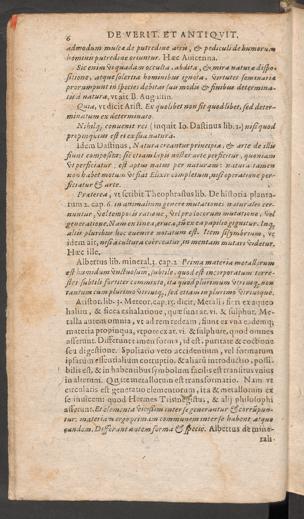 6 DE VERIT. ET ANTIQVIT.
admodum musca de putredine aëris, & pediculi de humorum
hominis putredine oriuntur. Hæc Auicenna.
Sic enim vi quadam occulta, abdita, & mira naturæ dispo-
sitione, atque solertia hominibus ignota, virtutes seminariæ
prorumpunt in species debitas suis modis & finibus determina-
tis à natura, vt ait B. Augustin.
Quia, vt dicit Arist. Ex quolibet non fit quodlibet, sed deter-
minatum ex determinato.
Nihilq́; conuenit rei (inquit Io. Dastinus lib. 1.) nisi quod
propinquius est ei ex sua natura.
Idem Dastinus, Natura creat principia, & arte de illis
fiunt composita: sic etiam lapis noster arte perficitur, quoniam
vt perficiatur, est aptus natus per naturam: natura tamen
non habet motum vt fiat Elixir completum, nisi operatione per-
ficiatur & arte.
Præterea, vt scribit Theophrastus lib. De historia planta-
rum 2. cap. 6. in animalium genere mutationes naturales eue-
niuntur, vel temporis ratione, vel prolocorum mutatione, vel
generatione. Nam ex linea, eruca, sic ex ea papilio gignitur. Inq́;
aliis pluribus hoc euenire notatum est. Item sisymbrium, vt
idem ait, nisi à cultura coërceatur, in mentam mutari videtur.
Hæc ille.
Albertus lib. mineral. 3. cap. 2. Prima materia metallorum
est humidum vnctuosum, subtile, quod est incorporatum terre-
stri subtili fortiter commixto, ita quod plurimum vtriusq́;, non
tantùm cum plurimo vtriusq́;, sed etiam in plurimo vtriusque.
Aristot. lib. 3. Meteor. cap. 15. dicit, Metalla fieri ex aqueo
halitu, & sicca exhalatione, quæ sunt ar. vi. & sulphur. Me-
talla autem omnia, vt ad rem redeam, fiunt ex vna eademq́;
materia propinqua, vtpote ex ar. vi. & sulphure, quod omnes
asserunt. Differunt autem forma, id est, puritate & coctione
seu digestione. Spoliatio vero accidentium, vel formarum
ipsarum essentialium corruptio, & aliarum introductio, possi-
bilis est, & in habentibus symbolum facilis est transitus vnius
in alterum. Quare metallorum est transformatio. Nam vt
circularis est generatio elementorum, ita & metallorum ex
se inuicem: quod Hermes Trismegistus, & alij philosophi
asserunt. Et elementa vicissim inter se generantur & corrumpun-
tur: materiam ergo primam communem inter se habent atque
eandem. Differunt autem forma & specie. Albertus de mine-
rali-